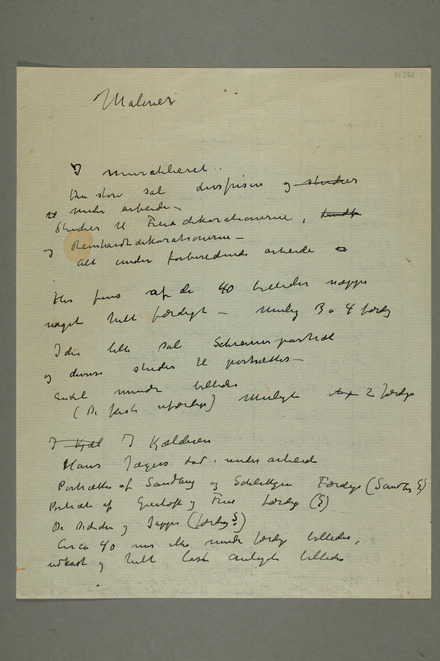 N 392
Malerier
I muratelieret..
Den store sal livsfrisen og studier
til under arbeide –
Studier til Freia dekorationerne,
og Reinhardtdekorationerne –
Alt under forberedende arbeide
Her fins af de 40 billeder næppe
noget helt færdigt – Mulig 3 a 4 færdig
I den lille sal Schreiner portræt
og diverse studier til portrætter –
Endel mindre billeder
(De fleste ufærdige) Muligt 2 færdige
I Kjæl I Kjælderen
Hans Jægers død. under arbeide
Portrætter af Sandberg og Schlittgen Færdige (Sandbg §)
Portræt af Gierløff og færdig (§)
De og (færdig §?)
Circa 40 mer eller mindre færdige billeder,
udkast og helt løst anlagte billeder